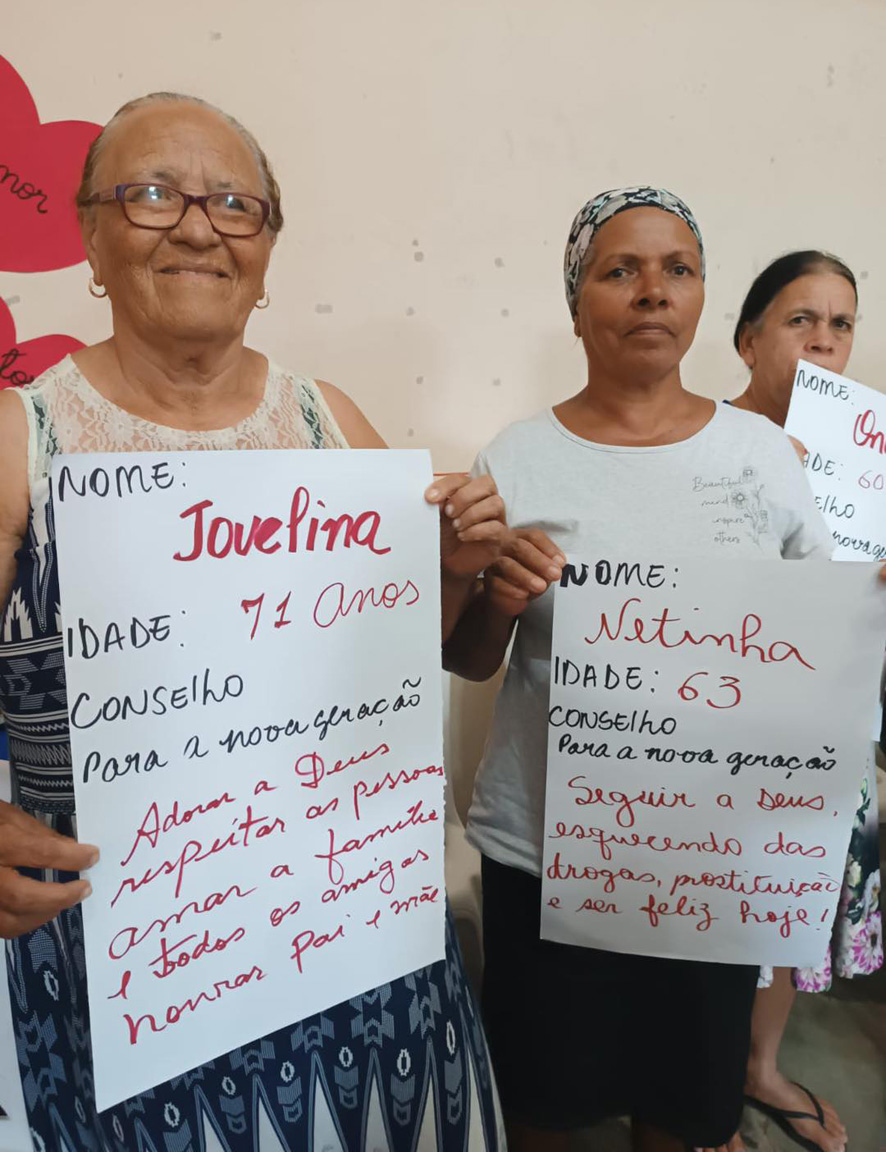 NOME:
Jovelina
IDADE: 71 anos
CONSElho
Para a nova geração
Adorar a Deus
respeitar as pessoas
amar a familia
e todos os amigos
honrar pai e mãe
NOME:
Netinha
IDADE: 63
CONSElho
Para a nova geração
Seguir a Deus,
esquecendo das
drogas, prostituição
e ser feliz hoje!
Beautiful
mind
inspire
others
NOME:
60